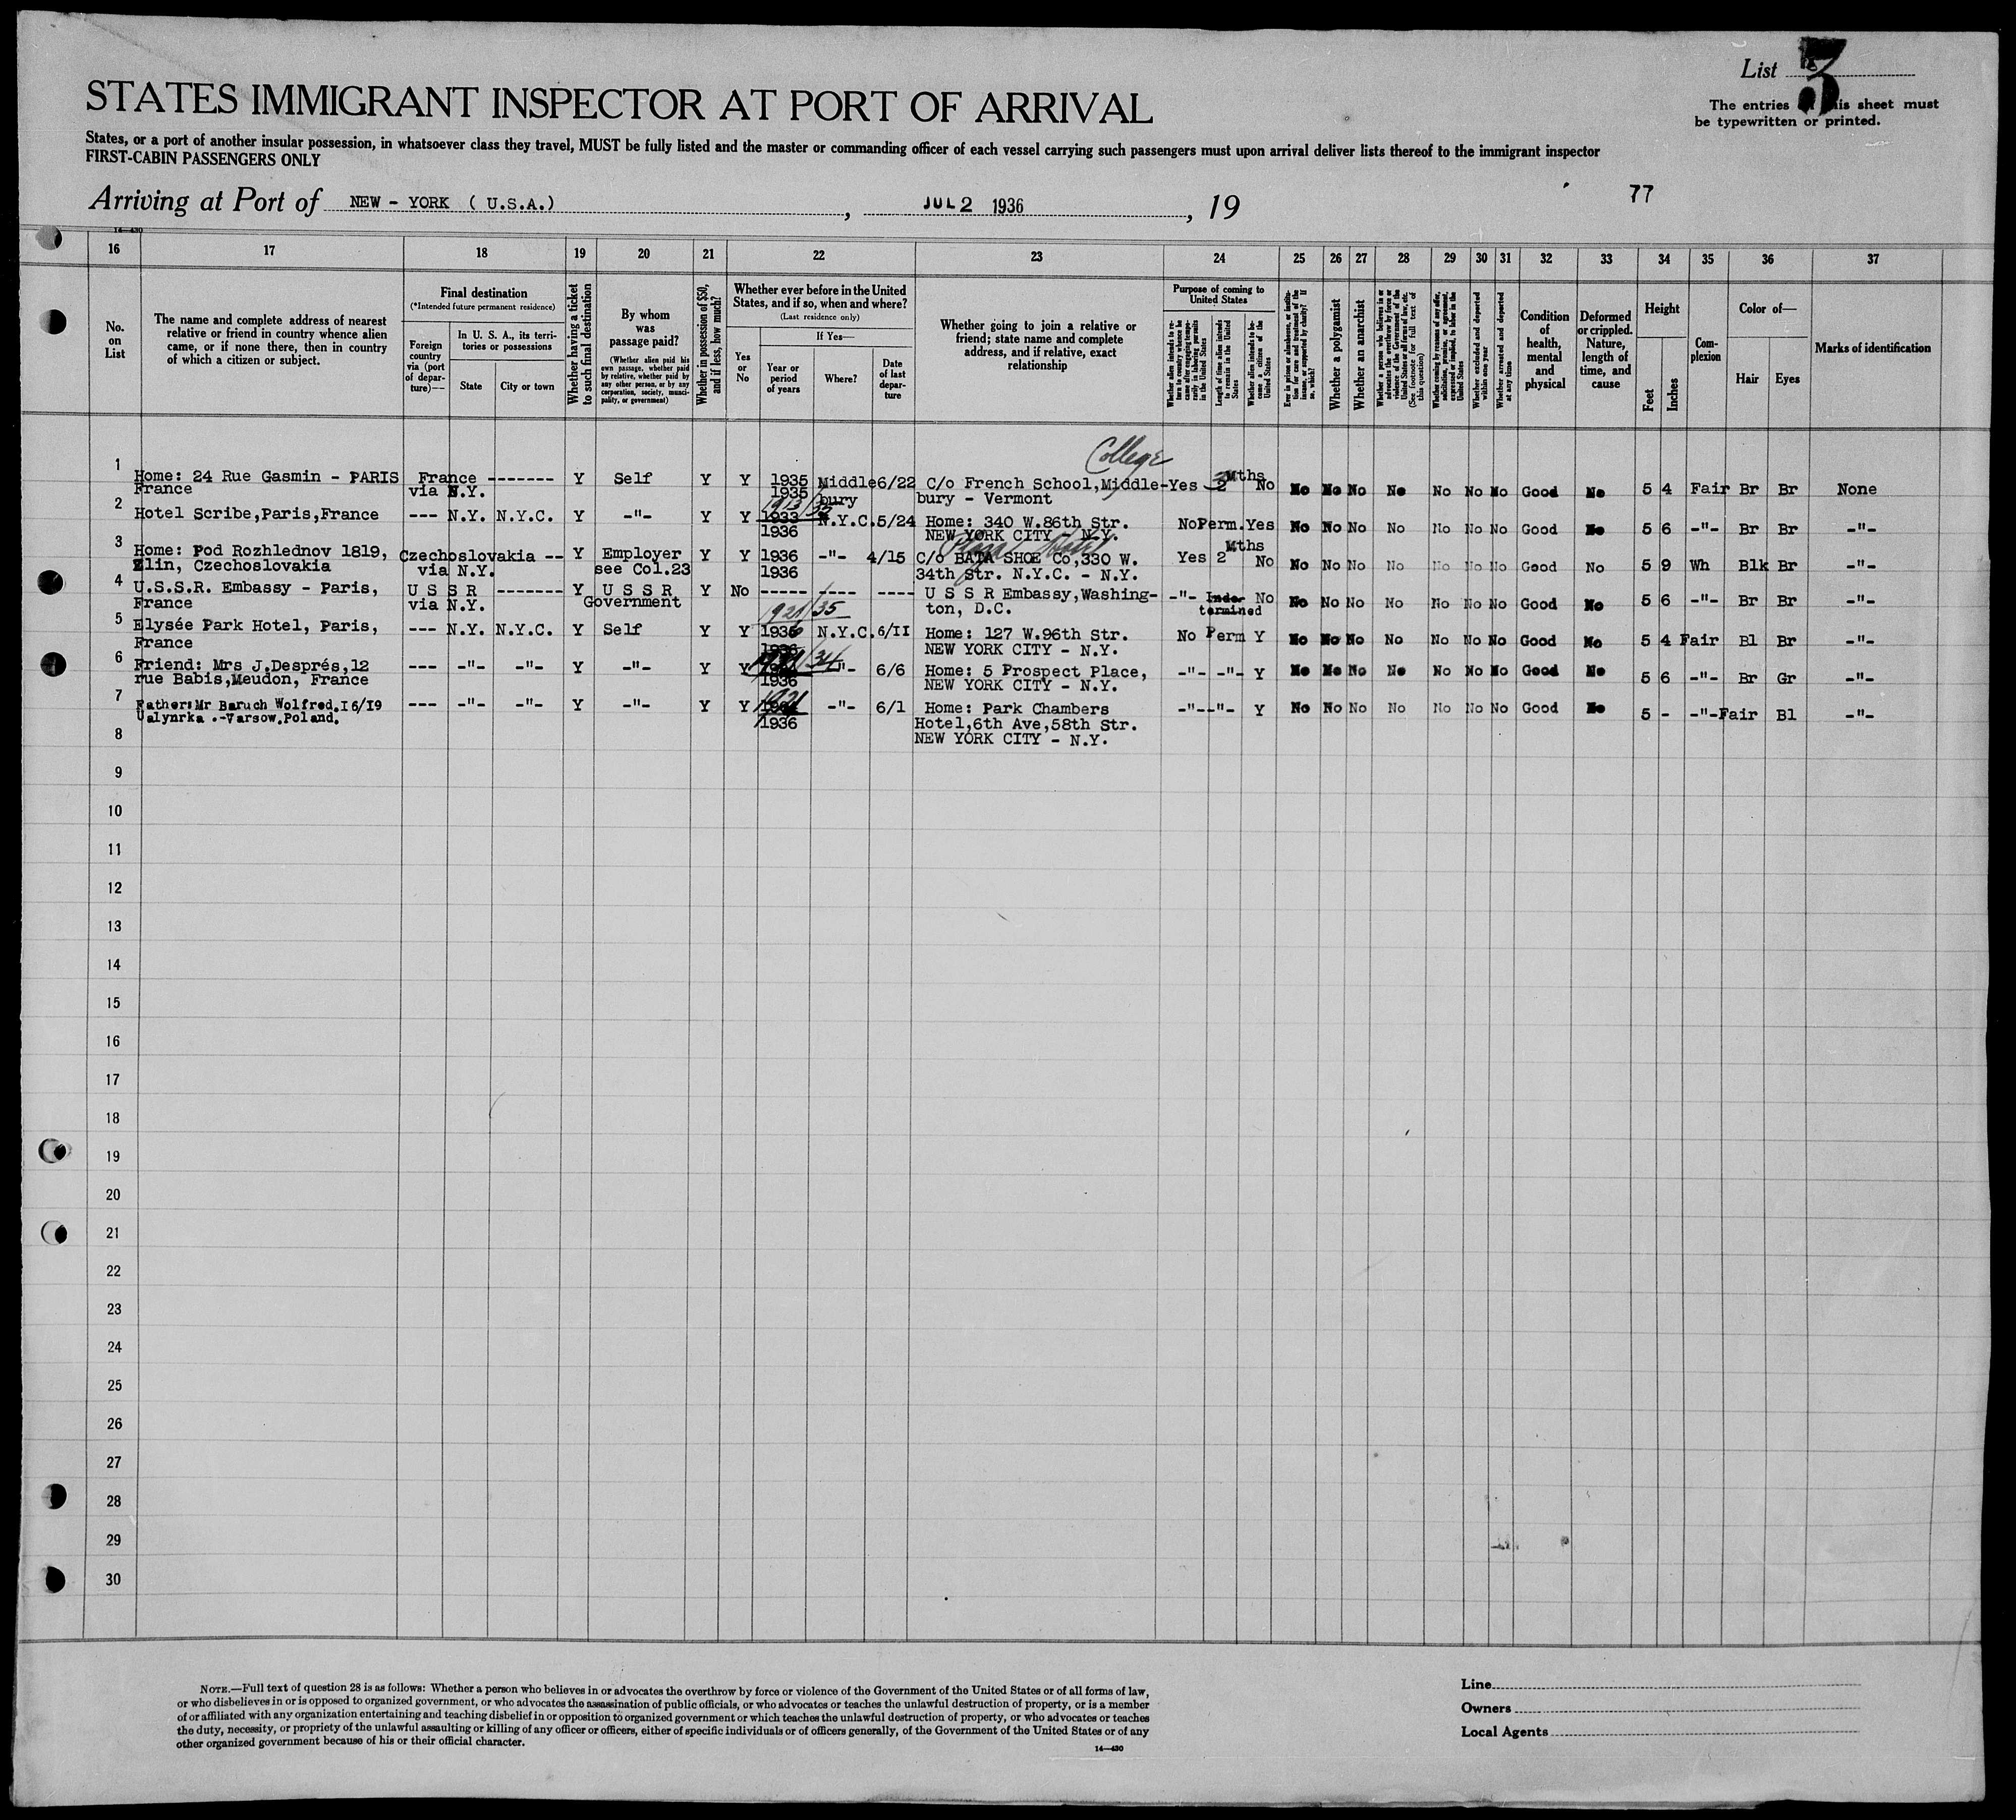 List 3
STATES IMMIGRANT INSPECTOR AT PORT OF ARRIVAL
The entries this sheet must
be typewritten or printed.
States, or a port of another insular possession, in whatsoever class they travel, MUST be fully listed and the master or commanding officer of each vessel carrying such passengers must upon arrival deliver lists thereof to the immigrant inspector
FIRST-CABIN PASSENGERS ONLY
Arriving at Port of NEW - YORK ( U.S.A.), JUL 2 1936, 19
77
14—430
16 17 18 19 20 21 22 23 24 25 26 27 28 29 30 31 32 33 34 35 36 37
No. on List
The name and complete address of nearest
relative or friend in country whence alien
came, or if none there, then in country
of which a citizen or subject.
Final destination
(*Intended future permanent residence)
Foreign country via (port of departure)—
In U. S. A., its territories or possessions
State
City or town
Whether having a ticket to such final destination
By whom was passage paid?
(Whether alien paid his own passage, whether paid by relative, whether paid by any other person, or by any corporation, society, municipality, or government)
Whether in possession of $50, and if less, how much?
Whether ever before in the United States, and if so, when and where?
(Last residence only)
Yes or No
If Yes—
Year or period of years
Where?
Date of last departure
Whether going to join a relative or
friend; state name and complete
address, and if relative, exact
relationship
Purpose of coming to United States
Whether alien intends to return to country whence he came after engaging temporarily in laboring pursuits in the United States
Length of time alien intends to remain in the United States
Whether alien intends to become a citizen of the United States
Ever in prison or almshouse, or institution for care and treatment of the insane, or supported by charity? If so, which?
Whether a polygamist
Whether an anarchist
Whether a person who believes in or advocates the overthrow by force or violence of the Government of the United States or all forms of law, etc. (See footnote for full text of this question)
Whether coming by reasons of any offer, solicitation, promise, or agreement, expressed or implied, to labor in the United States
Whether excluded and deported within one year
Whether arrested and deported at any time
Condition of health, mental and physical
Deformed or crippled. Nature, length of time, and cause
Height
Feet
Inches
Complexion
Color of—
Hair
Eyes
Marks of identification
College
1 Home: 24 Rue Gasmin - PARIS France ------- Y Self Y Y 1935 Middle 6/22 C/o French School,Middle- Yes 2 Mths No No No No No No No No Good No 5 4 Fair Br Br None
France via N.Y. 1935 bury bury - Vermont
2 Hotel Scribe,Paris,France --- N.Y. N.Y.C. Y -"- Y Y 1933 N.Y.C. 5/24 Home: 340 W.86th Str. No Perm. Yes No No No No No No No Good No 5 6 -"- Br Br -"-
1936 NEW YORK CITY - N.Y.
Plaza Hotel
3 Home: Pod Rozhlednov 1819, Czechoslovakia -- Y Employer Y Y 1936 -"- 4/15 C/o BATA SHOE Co,330 W. Yes 2 Mths No No No No No No No No Good No 5 9 Wh Blk Br -"-
Zlin, Czechoslovakia via N.Y. see Col.23 1936 34th Str. N.Y.C. - N.Y.
4 U.S.S.R. Embassy - Paris, U S S R ------- Y U S S R Y No ----- ---- ---- U S S R Embassy,Washing- -"- Inde- No No No No No No No No Good No 5 6 -"- Br Br -"-
France via N.Y. Government ton, D.C. termined
1921/35
5 Elysée Park Hotel, Paris, --- N.Y. N.Y.C. Y Self Y Y 1936 N.Y.C. 6/II Home: 127 W.96th Str. No Perm Y No No No No No No No Good No 5 4 Fair Bl Br -"-
France 1936 NEW YORK CITY - N.Y.
6 Friend: Mrs J.Després,12 --- -"- -"- Y -"- Y Y -"- 6/6 Home: 5 Prospect Place, -"- -"- Y No No No No No No No Good No 5 6 -"- Br Gr -"-
rue Babis,Meudon, France 1936 NEW YORK CITY - N.Y.
7 Father:Mr Baruch Wolfred.I6/I9 --- -"- -"- Y -"- Y Y -"- 6/1 Home: Park Chambers -"- -"- Y No No No No No No No Good No 5 - -"- Fair Bl -"-
Ualynrka .-Varsow.Poland. 1936 Hotel,6th Ave,58th Str.
8 NEW YORK CITY - N.Y.
9
10
11
12
13
14
15
16
17
18
19
20
21
22
23
24
25
26
27
28
29
30
NOTE.—Full text of question 28 is as follows: Whether a person who believes in or advocates the overthrow by force or violence of the Government of the United States or of all forms of law,
or who disbelieves in or is opposed to organized government, or who advocates the assassination of public officials, or who advocates or teaches the unlawful destruction of property, or is a member
of or affiliated with any organization entertaining and teaching disbelief in or opposition to organized government or which teaches the unlawful destruction of property, or who advocates or teaches
the duty, necessity, or propriety of the unlawful assaulting or killing of any officer or officers, either of specific individuals or of officers generally, of the Government of the United States or of any
other organized government because of his or their official character.
14—430
Line
Owners
Local Agents